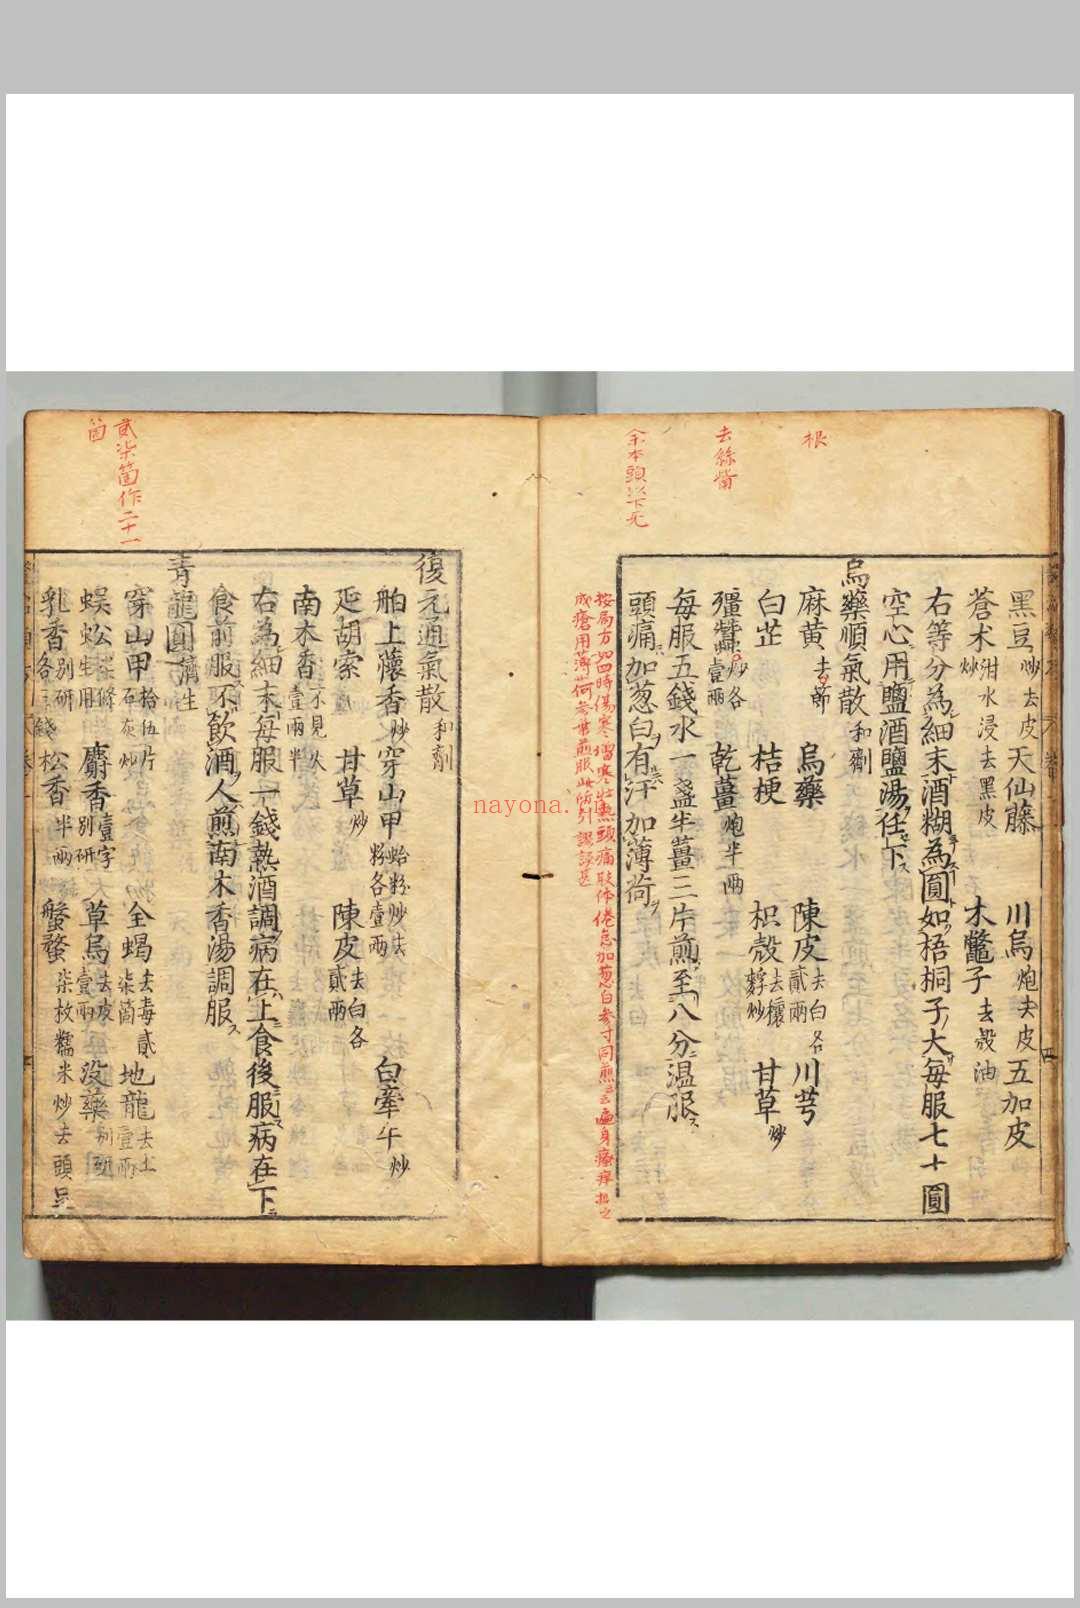 根
去絲嘴
黑豆炒去皮 天仙藤 川烏炮去皮 五加皮
蒼术泔水浸去黑皮炒 木鼈子去殼油
右等分為細末酒糊為圓如梧桐子大每服七十圓
空心用鹽酒鹽湯任下
烏藥順氣散和劑
麻黄去節 烏藥 陳皮去白各貳兩 川芎
白芷 桔梗 枳殼去穰麩炒 甘草炒
殭蠶炒各壹兩 乾薑炮半兩
每服五錢水一盞半薑三片煎至八分温服
頭痛加葱白有汗加薄荷
按局方
貳柒箇作二十一
箇
復元通氣散和劑
舶上蘹香炒 穿山甲蛤粉炒去粉各壹兩 白牽牛炒
延胡索 甘草炒 陳皮去白各貳兩
南木香不見火壹兩半
右為細末每服一錢熱酒調病在上食後服病在下
食前服不飲酒人煎南木香湯調服
青龍圓濟生
穿山甲拾伍片石灰炒 全蝎去毒貳柒箇 地龍去土壹兩
蜈蚣生用柒條 麝香壹字別研 草烏去皮壹兩 没藥別研
乳香別研各三錢 松香半兩 蟹蝥柒枚糯米炒去頭足
nayona.cn